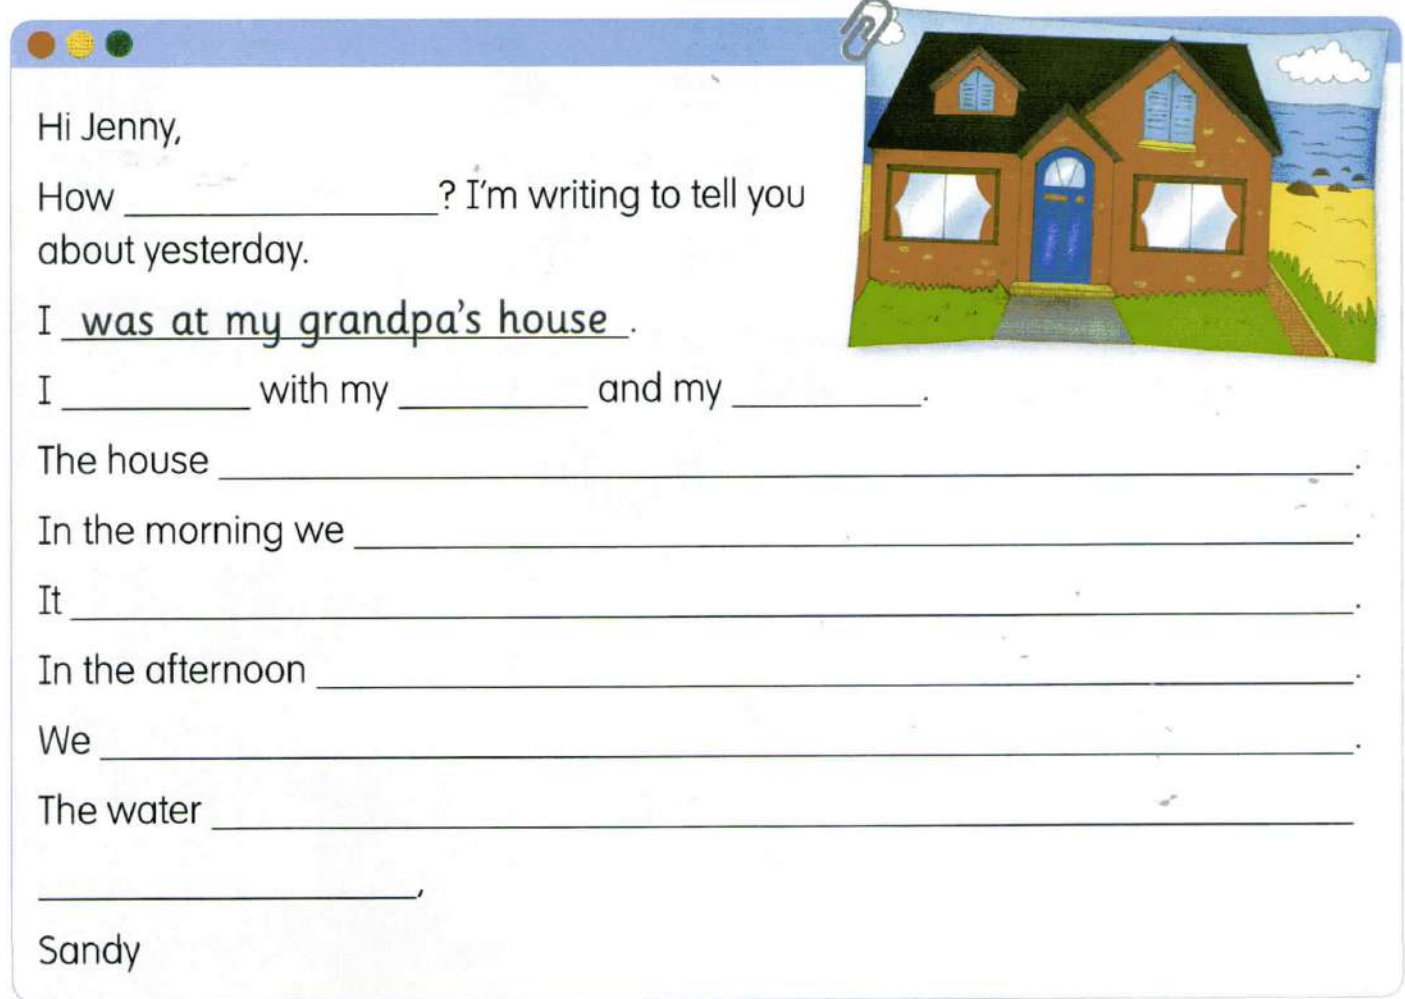 Hi Jenny,
How ____________? I'm writing to tell you
about yesterday.
I was at my grandpa's house.
I ________ with my ________ and my ________.
The house ________________________.
In the morning we ________________________.
It ________________________.
In the afternoon ________________________.
We ________________________.
The water ________________________
____________,
Sandy